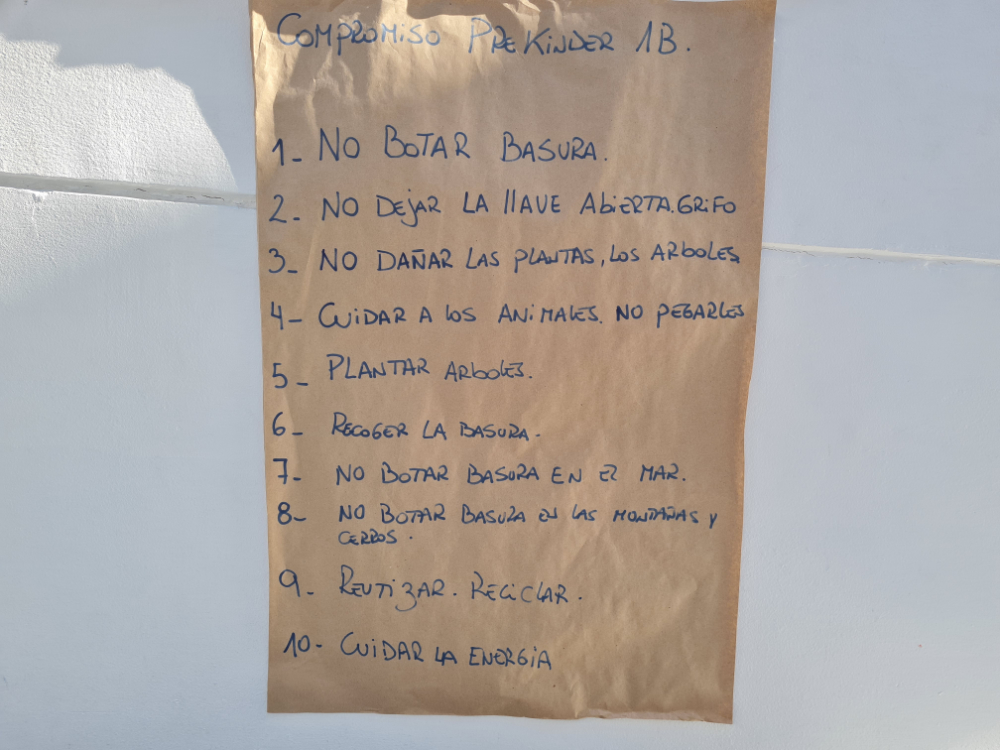 COMPROMISO PREKINDER 1B.
1- NO BOTAR BASURA.
2- NO DEJAR LA LLAVE ABIERTA.GRIFO
3- NO DAÑAR LAS PLANTAS, LOS ARBOLES,
4- CUIDAR A LOS ANIMALES. NO PEGARLES
5- PLANTAR ARBOLES.
6- RECOGER LA BASURA.
7- NO BOTAR BASURA EN EL MAR.
8- NO BOTAR BASURA EN LAS MONTAÑAS Y
CERROS.
9- REUTIZAR. RECICLAR.
10- CUIDAR LA ENERGIA